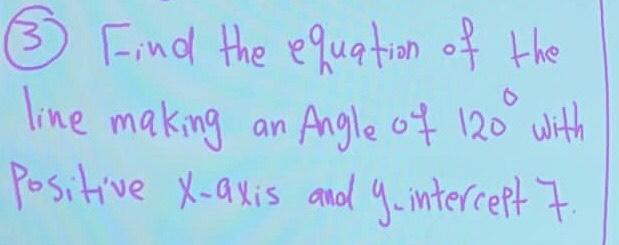 ③ Find the equation of the
line making an Angle of 120° with
Positive x-axis and y-intercept 7.